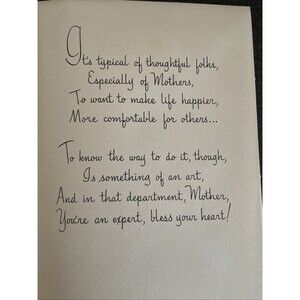 It's typical of thoughtful folks,
Especially of Mothers,
To want to make life happier,
More comfortable for others...
To know the way to do it, though,
Is something of an art,
And in that department, Mother,
You're an expert, bless your heart!